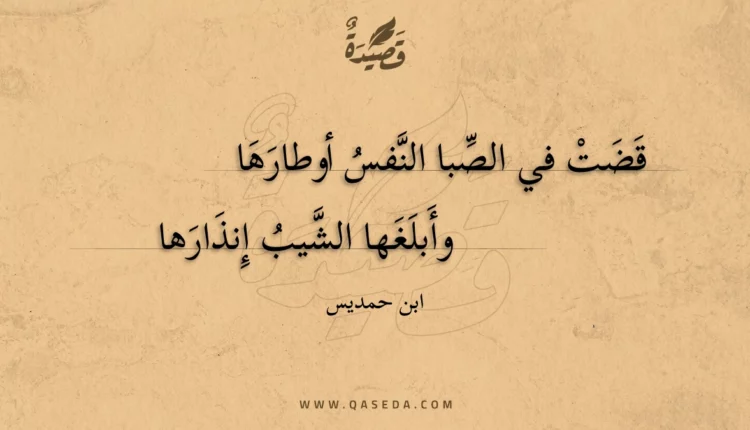 قَصِيْدَةٌ
قَضَتْ في الصِّبا النَّفسُ أوطارَهَا
وأَبلَغَها الشَّيبُ إِنذَارَها
ابن حمديس
WWW.QASEDA.COM